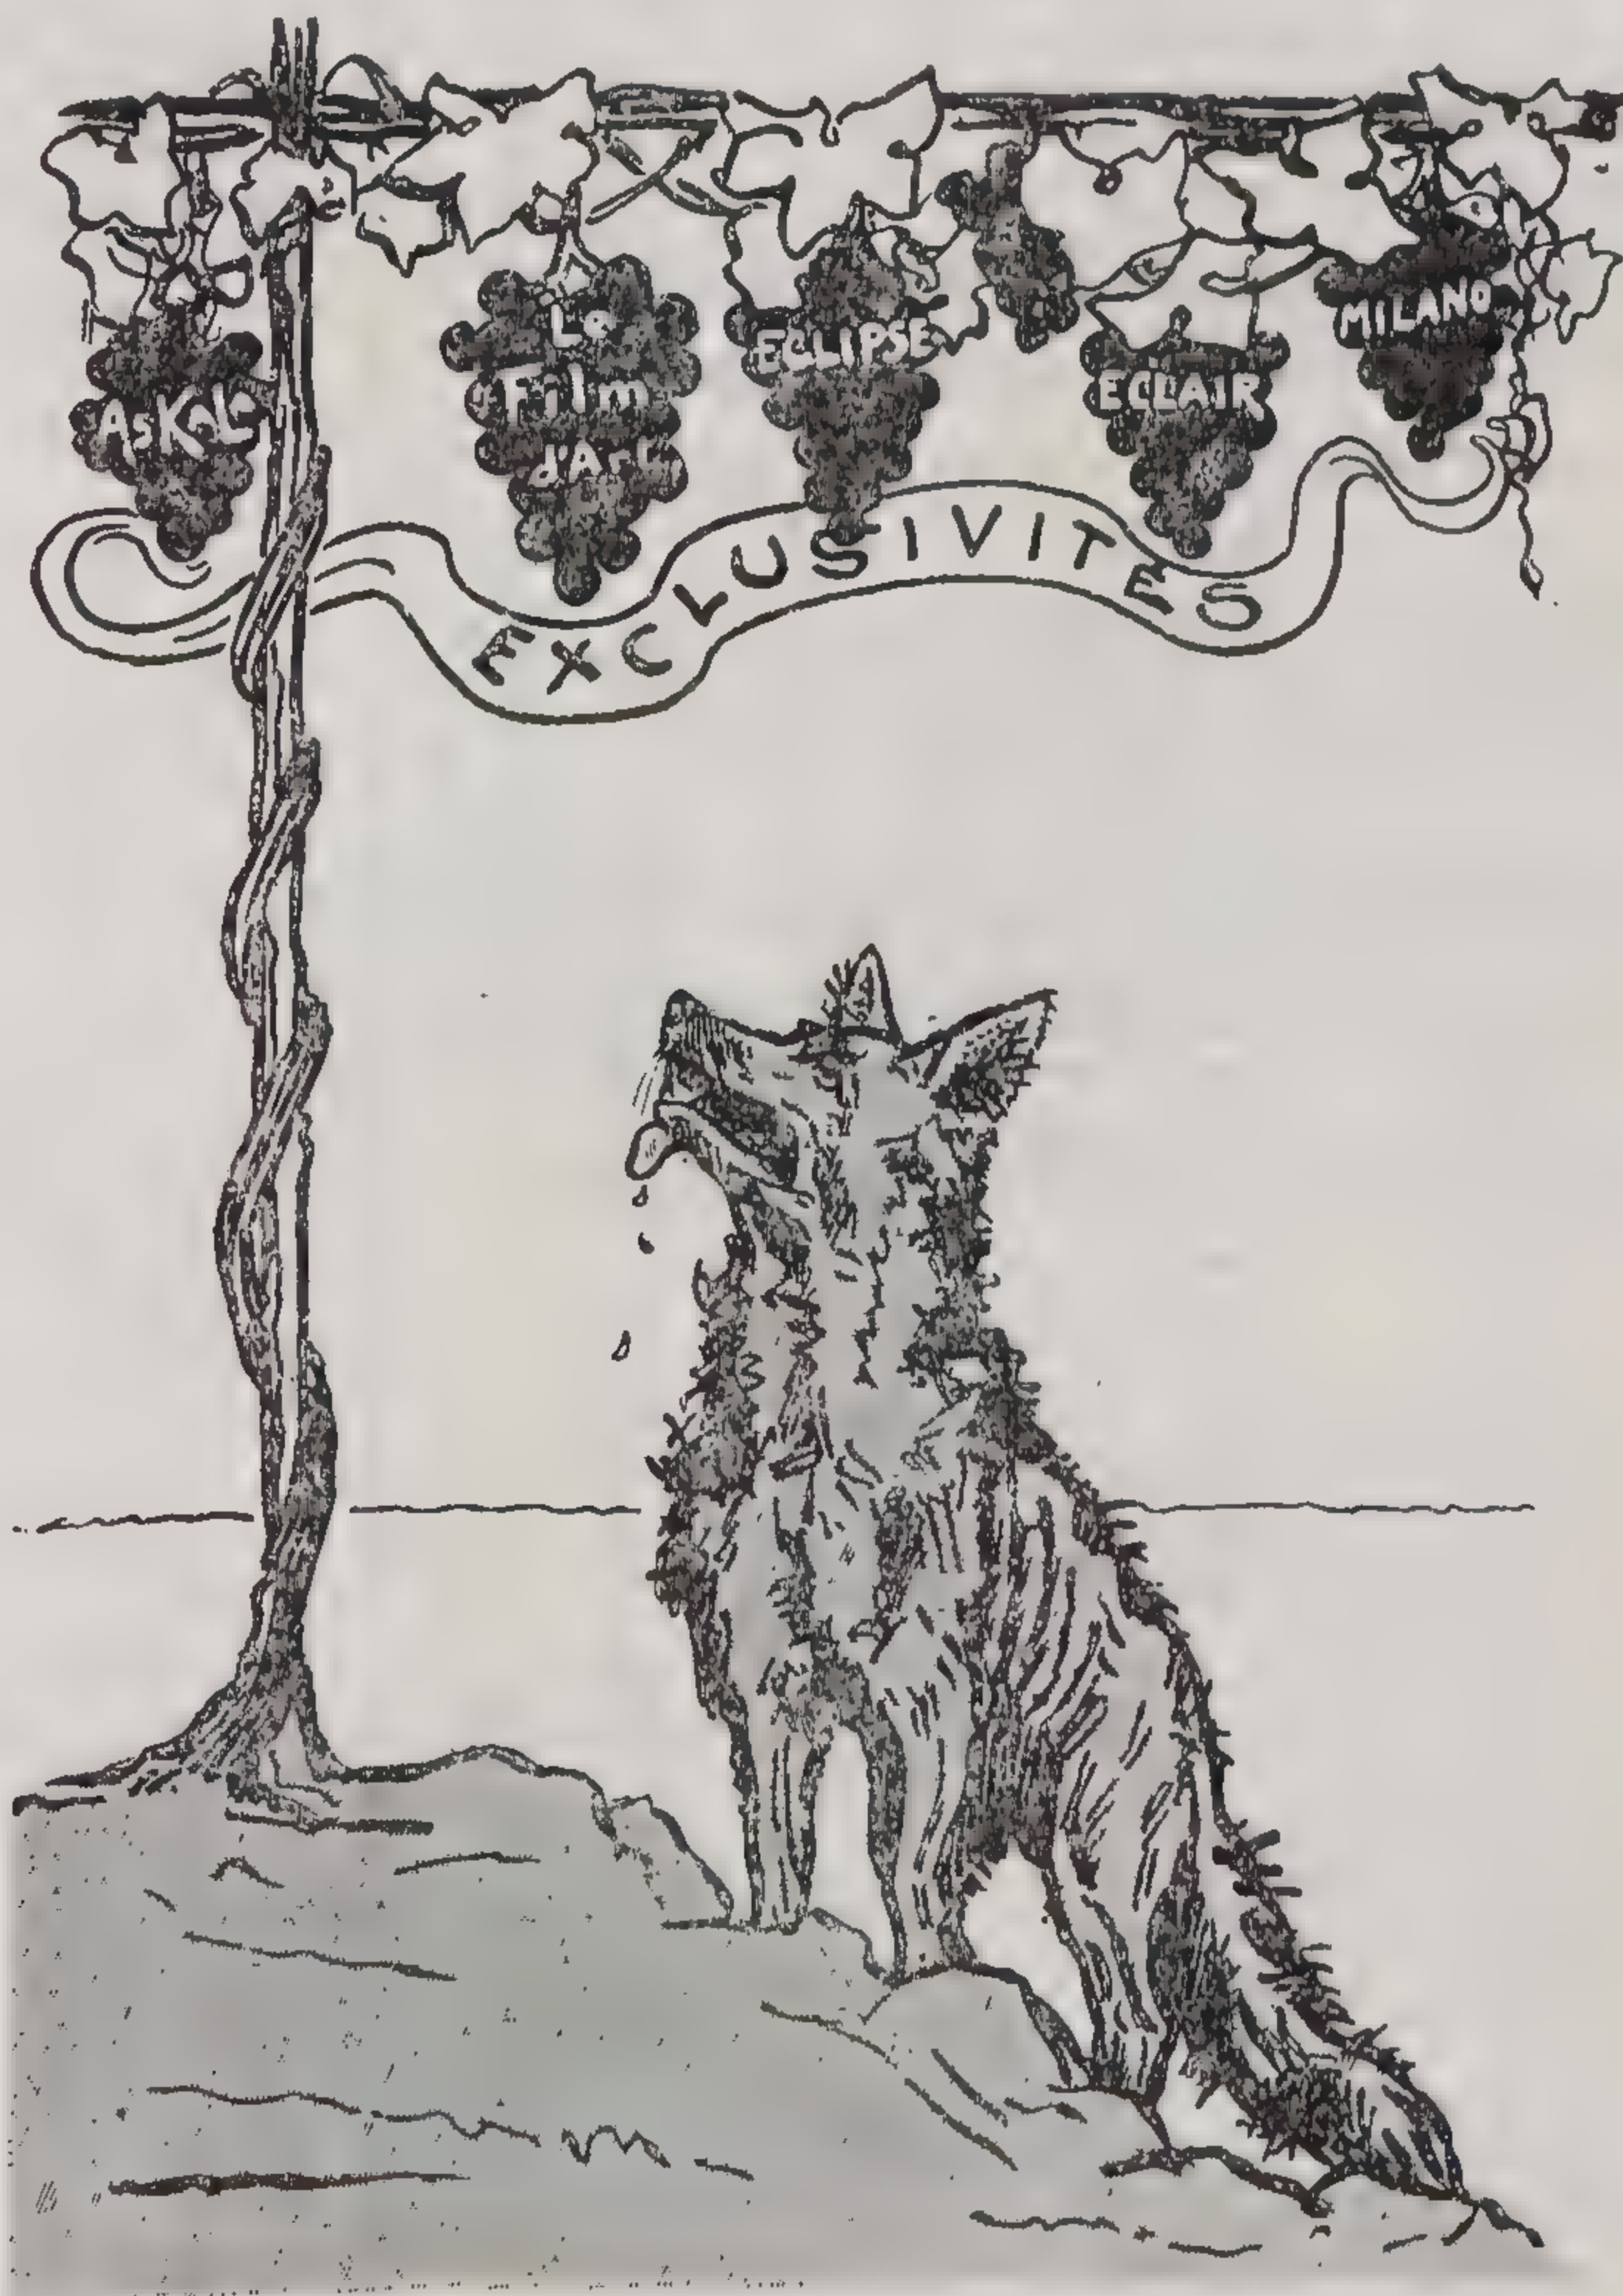 AsKaL
Le
Film
dArt
ECLIPSE
ECLAIR
MILANO
EXCLUSIVITES